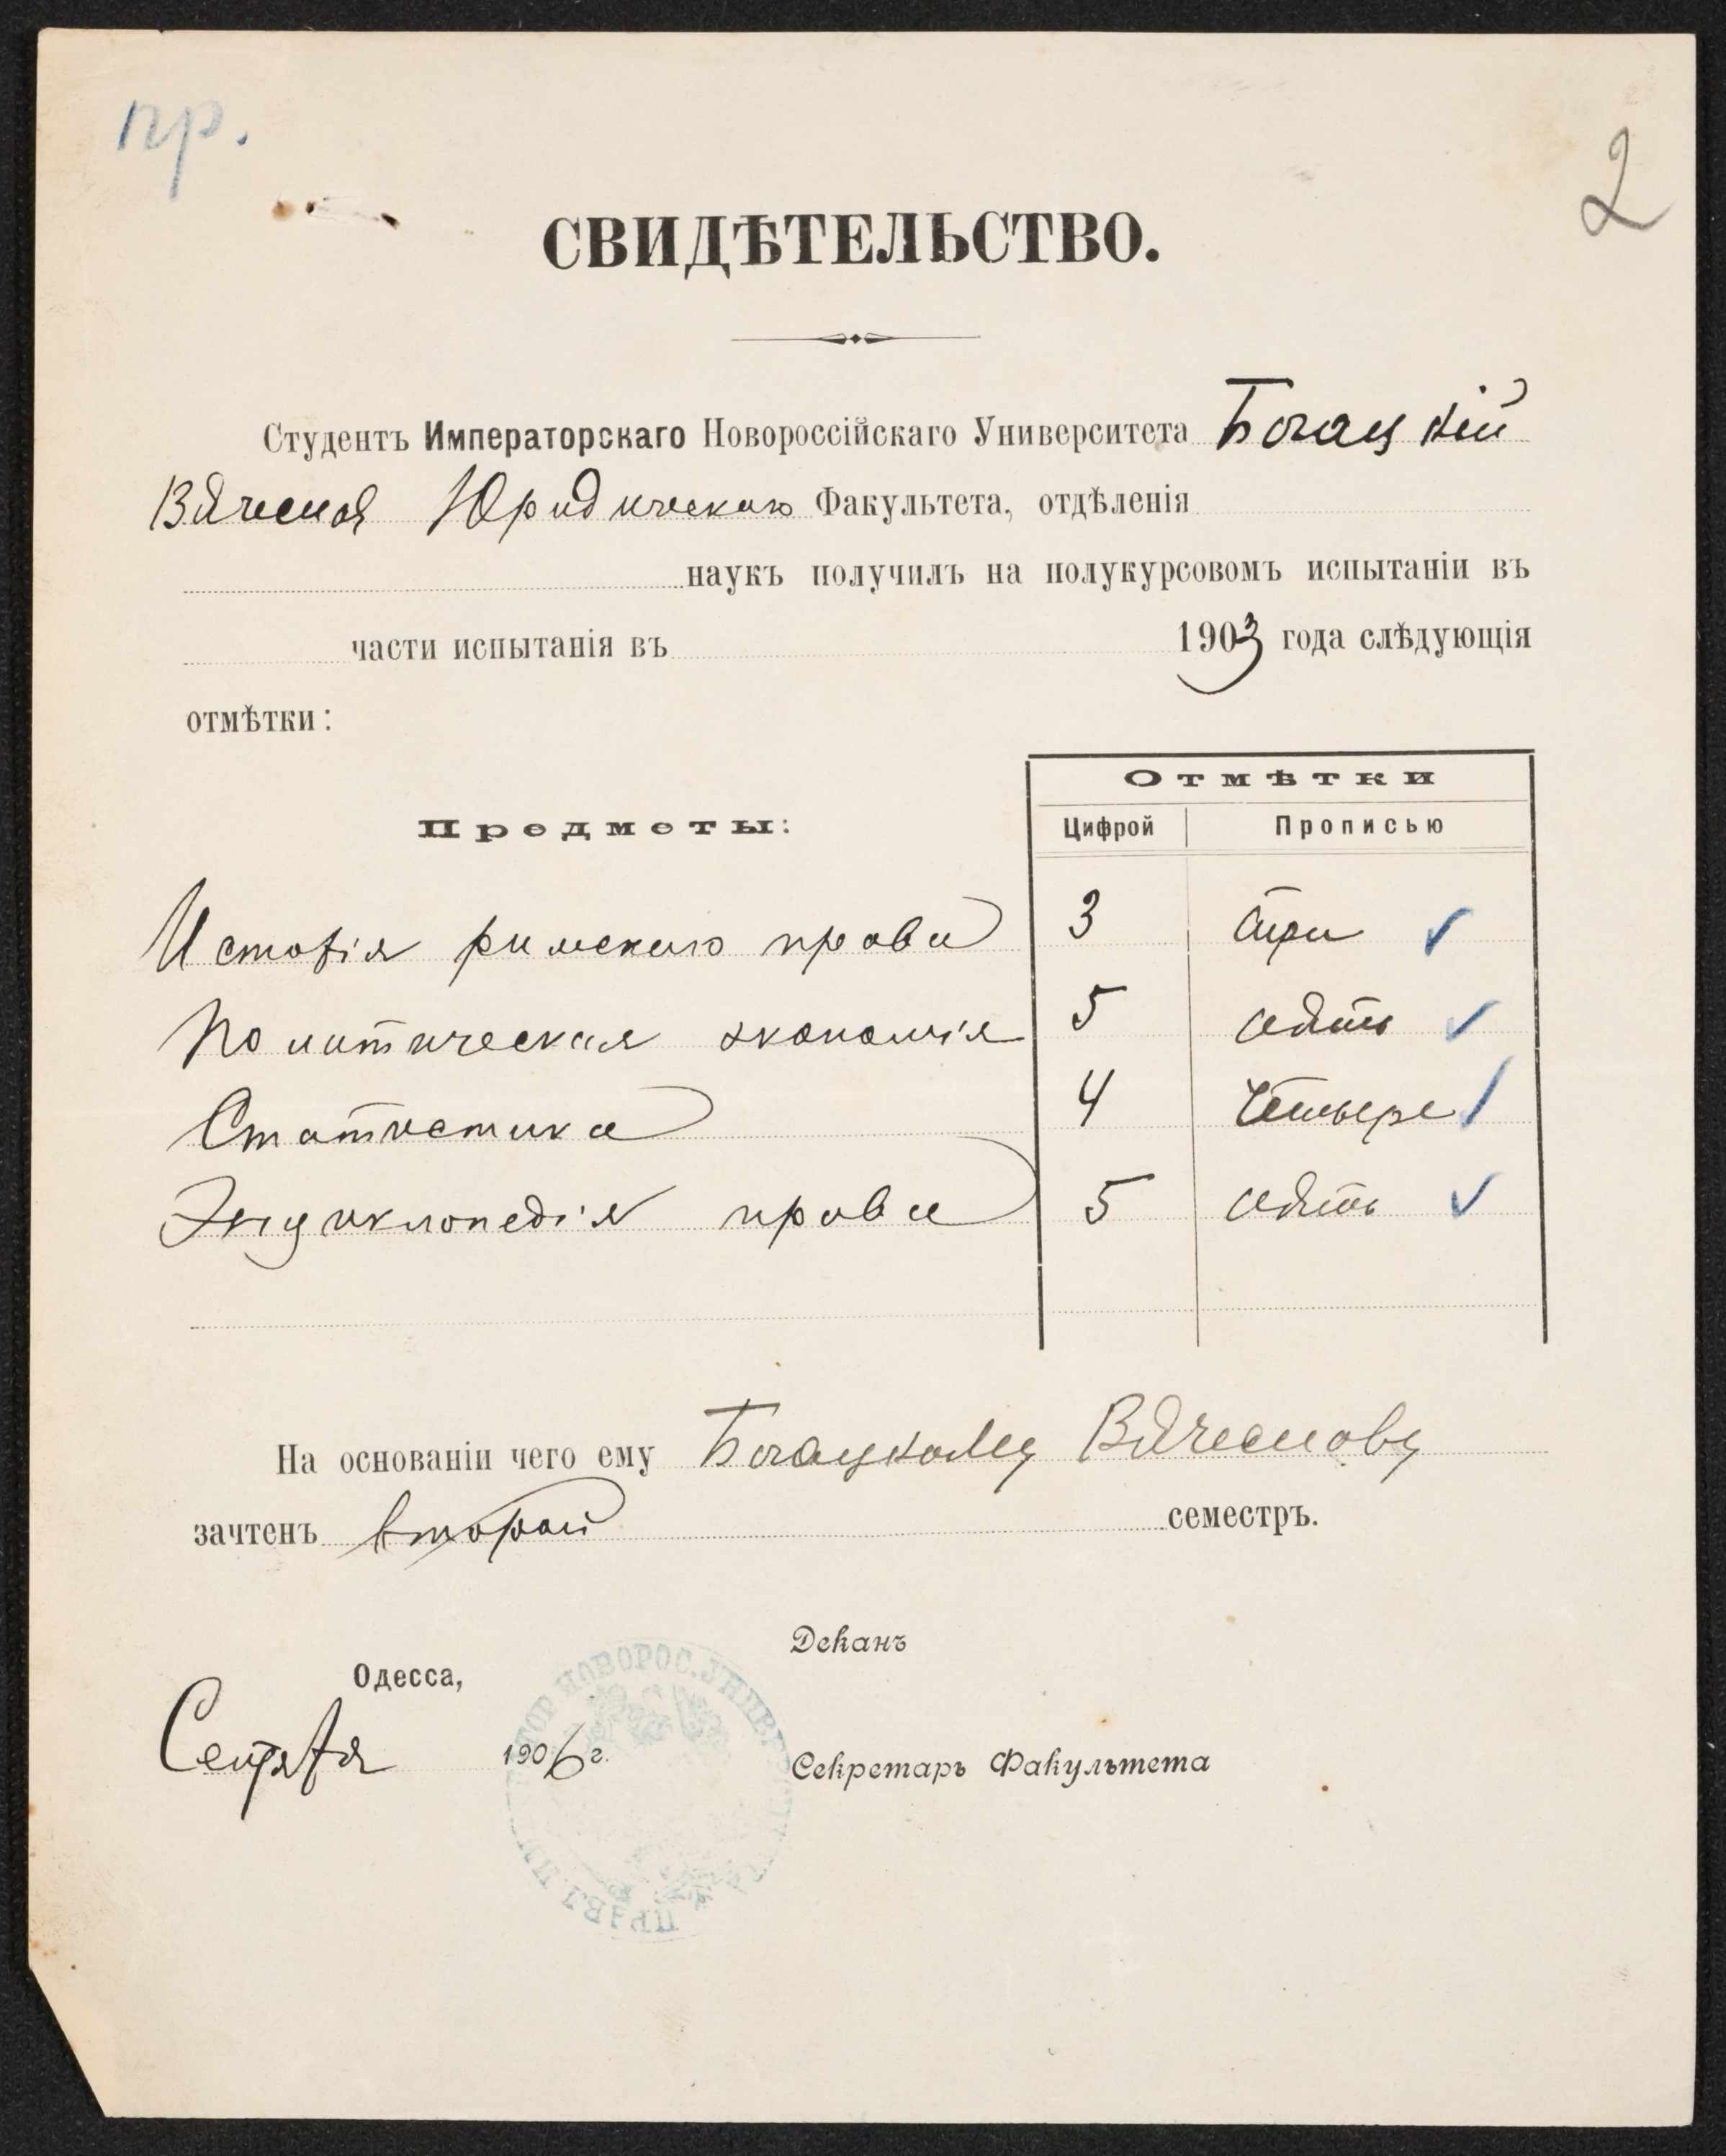 пр.
2
СВИДѢТЕЛЬСТВО.
Студентъ Императорскаго Новороссійскаго Университета Богацкій
Вячеслав Юридическаго Факультета, отдѣленія
наукъ получилъ на полукурсовомъ испытаніи въ
части испытанія въ 1903 года слѣдующія
отмѣтки:
Отмѣтки
Предметы: Цифрой Прописью
Исторія римскаго права 3 три
Политическая экономія 5 пять
Статистика 4 четыре
Энциклопедія права 5 пять
На основаніи чего ему Богацкому Вячеславу
зачтенъ второй семестръ.
Деканъ
Одесса,
1906 г.
Секретарь Факультета
НОВОРОС. УНИВЕР